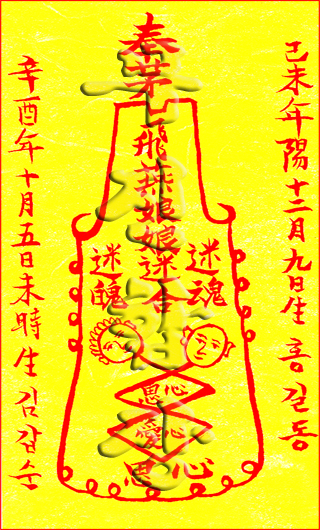 己未年陽十二月九日生홍길동
奉茅
飛燕娘娘迷合
迷魂
迷魄
思心
愛心
思心
辛酉年十月五日未時生김갑순